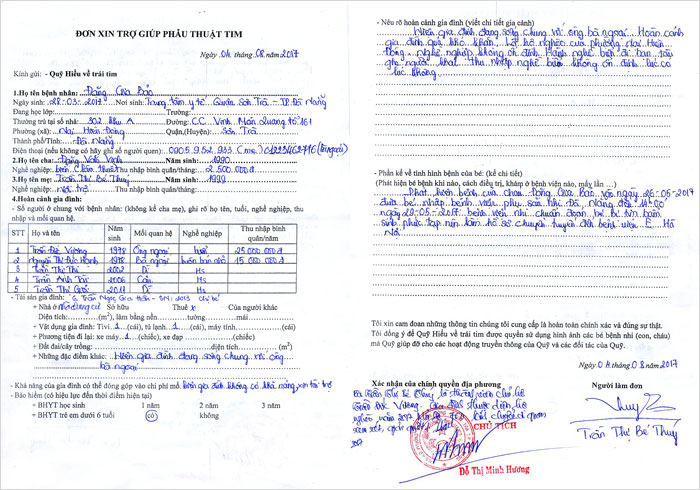 ĐƠN XIN TRỢ GIÚP PHẪU THUẬT TIM
Ngày 04 tháng 08 năm 2017
Kính gửi: - Quỹ Hiểu về trái tim
1.Họ tên bệnh nhân: Đặng Gia Bảo
Ngày sinh: 28-03-2017 Nơi sinh: Trung tâm y tế Quận Sơn Trà - TP Đà Nẵng
Đang học lớp: Trường:
Thường trú tại số nhà: 302 khu A Đường: C.C Vịnh Mân Quang tổ 161
Phường (xã): Nại Hiên Đông Quận,(Huyện): Sơn Trà
Thành phố/Tỉnh: Đà Nẵng
Điện thoại (nếu không có hãy ghi số người quen): 0905.952.933 (mẹ)
2.Họ tên cha: Đặng Văn Vinh Năm sinh: 1990
Nghề nghiệp: Thu nhập bình quân/tháng: 2.500.000đ
3.Họ tên mẹ: Trần Thị Bé Thuy Năm sinh: 1999
Nghề nghiệp: nội trợ Thu nhập bình quân/tháng:
4.Hoàn cảnh gia đình:
- Số người ở chung với bệnh nhân: (không kể cha mẹ), ghi rõ họ tên, tuổi, nghề nghiệp, thu
nhập và mối quan hệ.
STT Họ và tên Năm sinh Mối quan hệ Nghề nghiệp Thu nhập bình quân/năm
1 Trần Đức Vương 1978 Ông ngoại 25 000 000đ
2 Nguyễn Thị Đức Hạnh 1978 Bà ngoại 15 000 000đ
3 Trần Thị 2002 Dì Hs
4 Trần Anh Tài 2006 Cậu Hs
5 Trần Thị 2011 Dì Hs
- Tài sản gia đình: 6 Trần Ngọc Gia Hân - SN: 2013
+ Nhà ở Sở hữu Thuê x Của người khác
Diện tích: (m²), làm bằng nền tường mái
+ Vật dụng gia đình: Tivi 1 (cái), tủ lạnh 1 (cái), máy vi tính (cái)
+ Phương tiện đi lại: xe máy 1 (chiếc), xe đạp (chiếc)
+ Đất đai/cây trồng: diện tích (m²)
+ Những đặc điểm khác: Hiện gia đình đang sống chung với ông
bà ngoại
- Khả năng của gia đình có thể đóng góp vào chi phí mổ: hiện gia đình không có khả năng, xin tài trợ
- Bảo hiểm (có hiệu lực đến thời điểm hiện tại)
+ BHYT học sinh 1 năm 2 năm 3 năm
+ BHYT trẻ em dưới 6 tuổi có không
- Nêu rõ hoàn cảnh gia đình (viết chi tiết gia cảnh)
Hiện gia đình đang sống chung với ông bà ngoại. Hoàn cảnh
gia đình quá khó khăn. Là hộ nghèo của phường Nại Hiên
Đông. Nghề nghiệp không ổn định
thu nhập nghề biển không ổn định lúc có
lúc không.
- Phần kể về tình hình bệnh của bé: (kể chi tiết)
(Phát hiện bé bệnh khi nào, cách điều trị, khám ở bệnh viện nào, mấy lần ...)
Phát hiện bệnh của cháu Đặng Gia Bảo vào ngày 26-05-2017
đưa bé nhập bệnh viện phụ sản nhi Đà Nẵng
ngày 29-05-2017 bệnh viện nhi chuẩn đoán bé bị tim bẩm
sinh phức tạp nên làm hồ sơ chuyển tuyến đến bệnh viện E Hà
Nội
Tôi xin cam đoan những thông tin chúng tôi cung cấp là hoàn toàn chính xác và đúng sự thật.
Tôi đồng ý để Quỹ Hiểu về trái tim được quyền sử dụng hình ảnh các bé bệnh nhi (con, cháu)
mà Quỹ giúp đỡ cho các hoạt động truyền thông của Quỹ và các đối tác của Quỹ.
Ngày 04 tháng 08 năm 2017
Xác nhận của chính quyền địa phương
Người làm đơn
Bà Trần Thị Bé Thuy là thành viên chủ hộ
Trần Đức Vương. Gia đình thuộc diện hộ
nghèo
CHỦ TỊCH
Đỗ Thị Minh Hương
Thuy
Trần Thị Bé Thuy